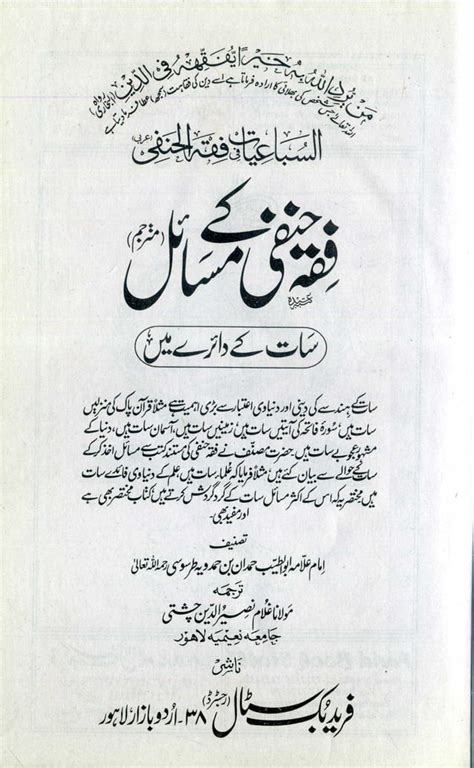 من یرد اللہ بہ خیرا یفقہہ فی الدین (بخاری)
اللہ تعالیٰ جس شخص کی بھلائی کا ارادہ فرماتا ہے اسے دین کی فقاہت (سمجھ) عطا
السباعیات فی فقہ الحنفی (عربی)
فقہ حنفی کے مسائل (مترجم)
سات کے دائرے میں
سات کے ہندسے کی دینی اور دنیاوی اعتبار سے بڑی اہمیت ہے مثلاً قرآن پاک کی منزلیں
سات ہیں، سورۂ فاتحہ کی آیتیں سات ہیں، زمینیں سات ہیں، آسمان سات ہیں، دنیا کے
مشہور عجوبے سات ہیں۔ حضرت مصنف نے فقہ حنفی کی مستند کتب سے مسائل اخذ کر کے
سات کے حوالے سے بیان کئے ہیں؛ مثلاً فرمایا کہ علماء سات ہیں، علم کے دنیاوی فائدے سات
ہیں مختصر یہ کہ اس کے اکثر مسائل سات کے گرد گردش کرتے ہیں کتاب مختصر بھی ہے
اور مفید بھی۔
تصنیف
امام علامہ ابوالطیب حمدان بن حمدویہ طرسوسی رحمہ اللہ تعالیٰ
ترجمہ
مولانا غلام نصیر الدین چشتی
جامعہ نعیمیہ لاہور
ناشر
فرید بک سٹال (رجسٹرڈ) ۳۸۔ اردو بازار لاہور